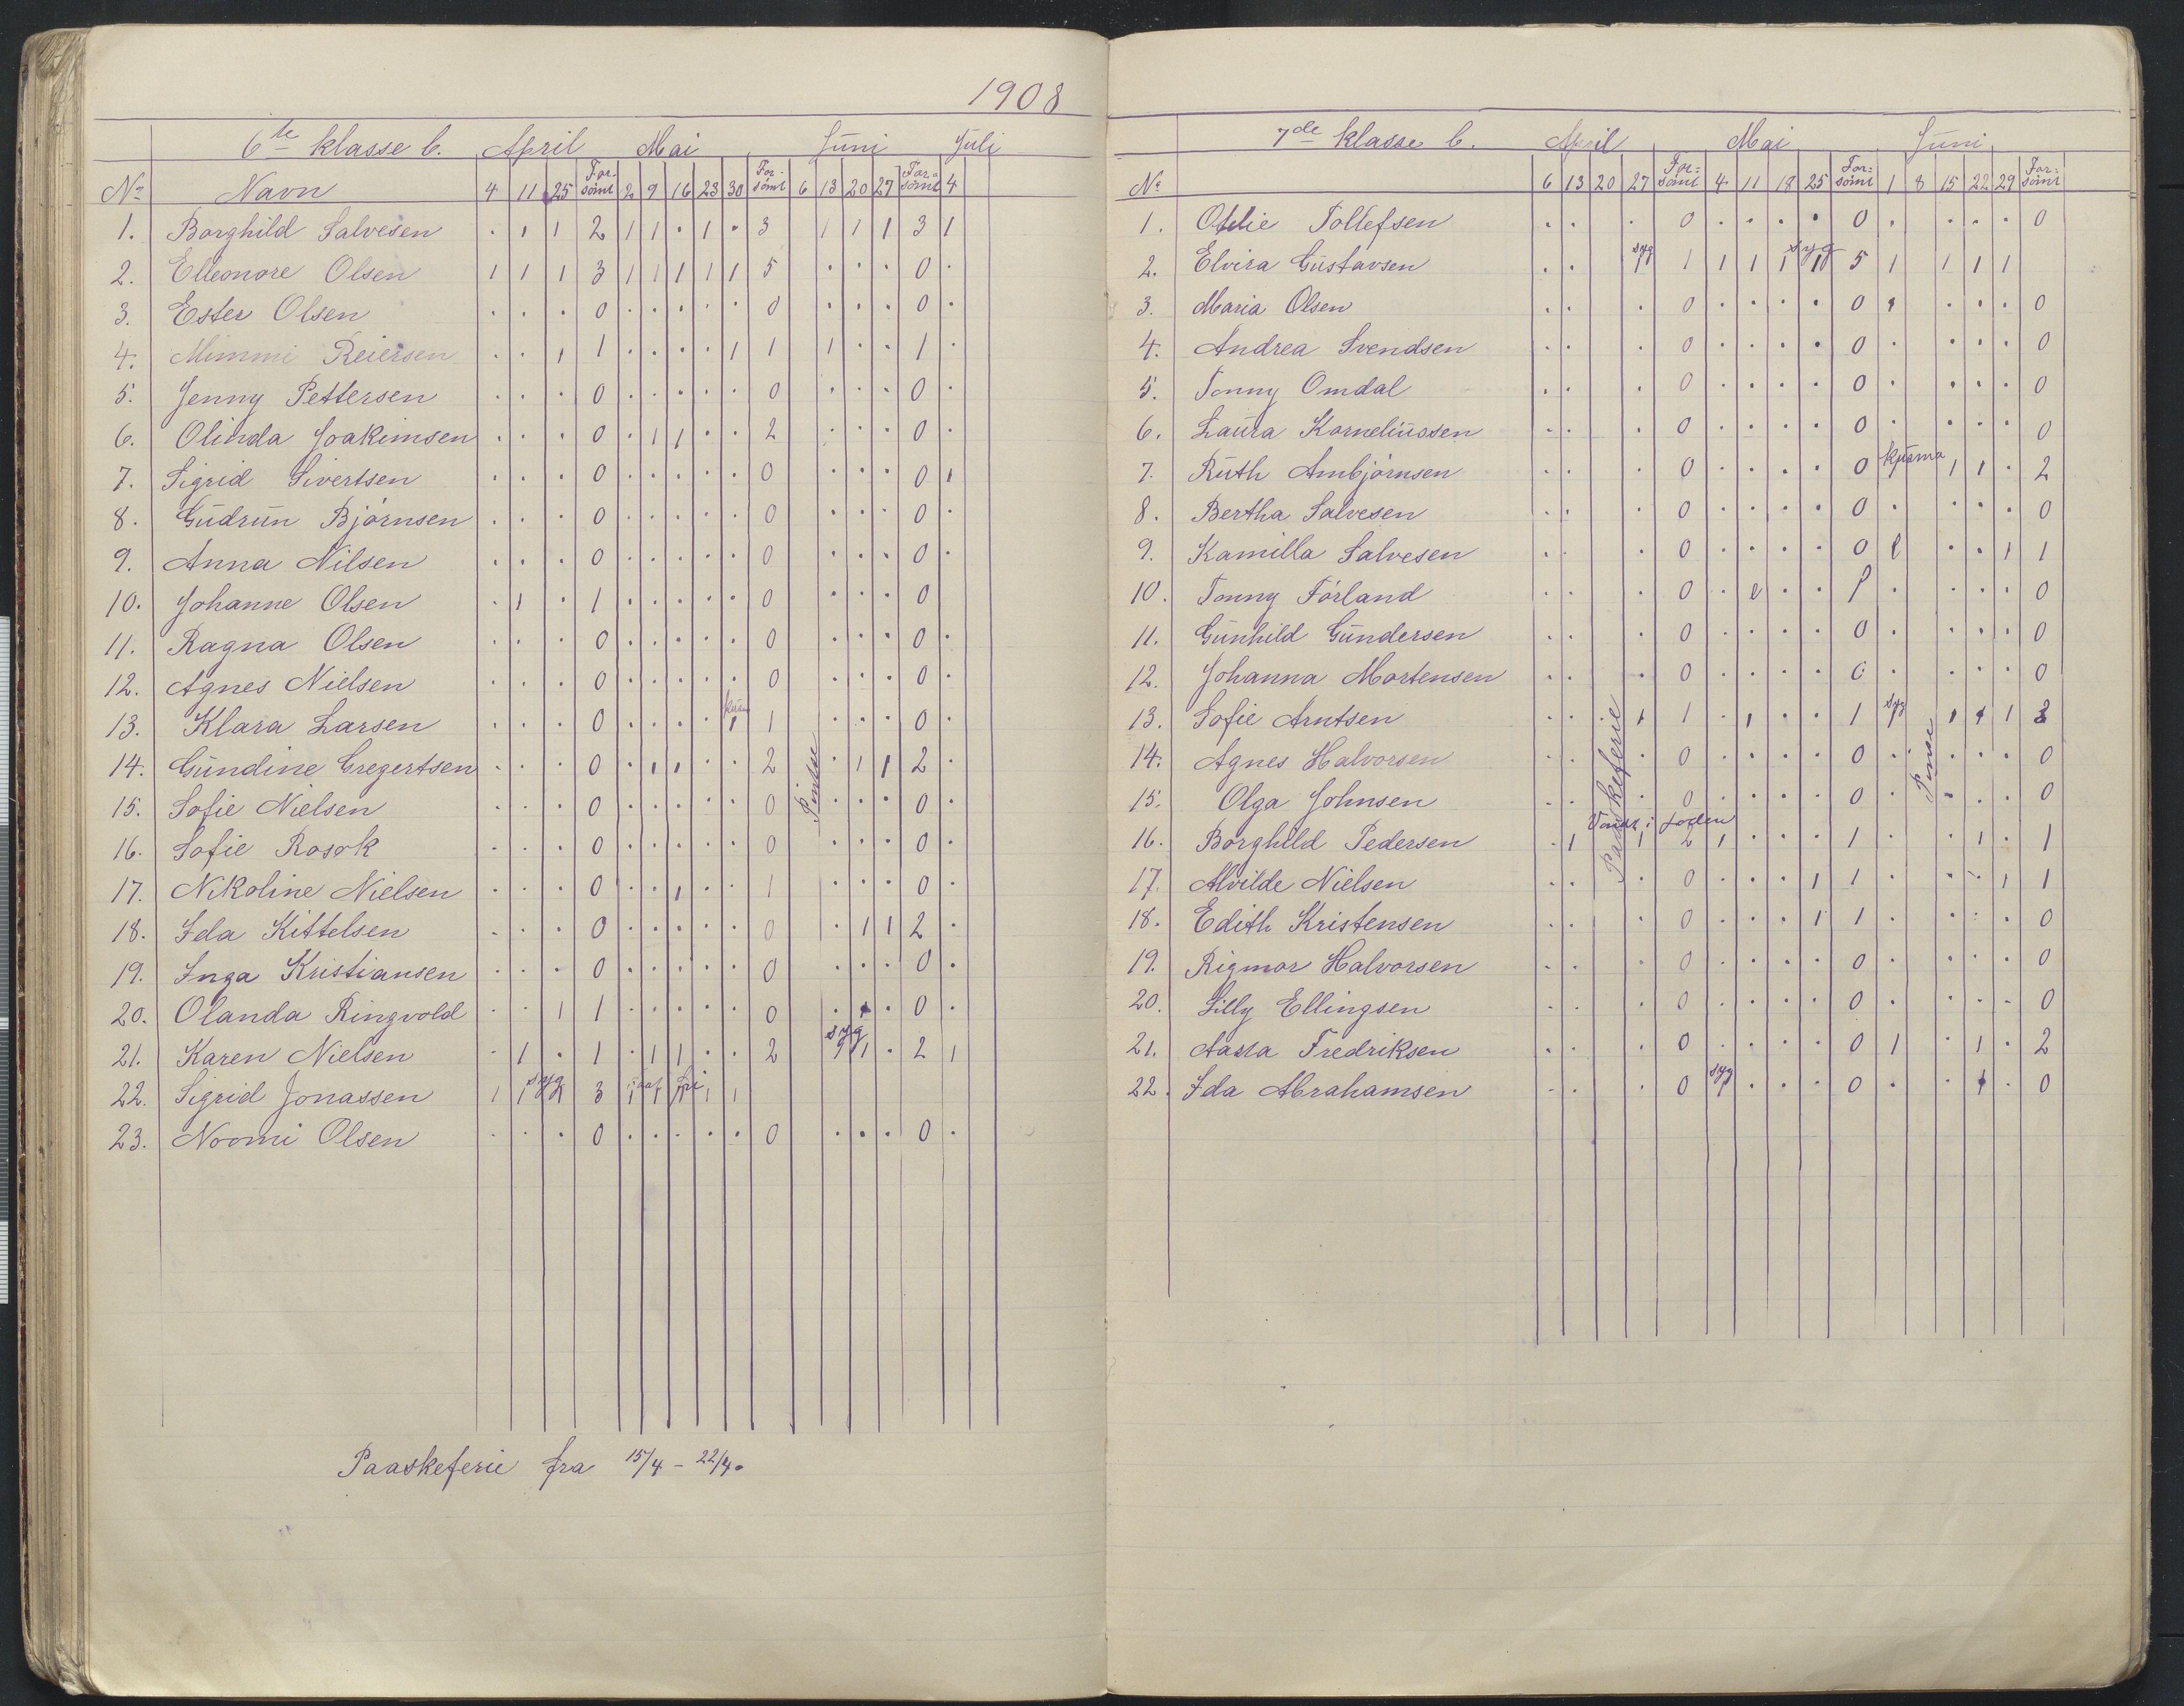 1908
6te klasse b. April Mai Juni Juli
No Navn 4 11 25 Forsömt 2 9 16 23 30 Forsömt 6 13 20 27 Forsömt 4
1. Borghild Salvesen . 1 1 2 1 1 . 1 . 3 1 1 1 3 1
2. Elleonore Olsen 1 1 1 3 1 1 1 1 1 5 . . . 0 .
3. Ester Olsen . . . 0 . . . . . 0 . . . 0 .
4. Mimmi Reiersen . . 1 1 . . . . 1 1 1 . . 1 .
5. Jenny Pettersen . . . 0 . . . . . 0 . . . 0 .
6. Olinda Joakimsen . . . 0 . 1 1 . . 2 . . . 0 .
7. Sigrid Sivertsen . . . 0 . . . . . 0 . . . 0 1
8. Gudrun Bjørnsen . . . 0 . . . . . 0 . . . 0 .
9. Anna Nilsen . . . 0 . . . . . 0 . . . 0 .
10. Johanne Olsen . 1 . 1 . . . . . 0 . . . 0
11. Ragna Olsen . . . 0 . . . . . 0 . . . 0 .
12. Agnes Nielsen . . . 0 . . . . . 0 . . . 0 .
13. Klara Larsen . . . 0 . . . . 1 1 . . . 0 .
14. Gundine Gregertsen . . . 0 . 1 1 . . 2 . 1 1 2 .
Pintse
15. Sofie Nielsen . . . 0 . . . . . 0 . . . 0 .
16. Sofie Rosøk . . . 0 . . . . . 0 . . . 0 .
17. Nikoline Nielsen . . . 0 . . 1 . . 1 . . . 0 .
18. Ida Kittelsen . . . 0 . . . . . 0 . 1 1 2 .
19. Inga Kristiansen . . . 0 . . . . . 0 . . . 0 .
20. Olanda Ringvold . . 1 1 . . . . . 0 . . . 0 .
syg
21. Karen Nielsen . 1 . 1 . 1 1 . . 2 1 1 . 2 1
syg fri
22. Sigrid Jonassen 1 1 1 3 1 1 1 1 1
23. Noomi Olsen . . . 0 . . . . . 0 . . . 0 .
Paaskeferie fra 15/4 - 22/4.
7de klasse b. April Mai Juni
No 6 13 20 27 Forsömt 4 11 18 25 Forsömt 1 8 15 22 29 Forsömt
1. Othlie Tollefsen . . . 0 . . . . 0 . . . . 0
syg syg
2. Elvira Gustavsen . . 1 1 1 1 1 1 5 1 1 1 1
3. Maria Olsen . . . 0 . . . . 0 . . . . 0
4. Andrea Svendsen . . . 0 . . . . 0 . . . . 0
5. Tonny Omdal . . . 0 . . . . 0 . . . . 0
6. Laura Korneliussen . . . 0 . . . . 0 . . . . 0
7. Ruth Ambjørnsen . . . 0 . . . . 0 1 1 . 2
8. Bertha Salvesen . . . 0 . . . . 0 . . . . 0
9. Kamilla Salvesen . . . 0 . . . . 0 . . 1 1
10. Tonny Förland . . . 0 . . . . . . . 0
11. Gunhild Gundersen . . . 0 . . . . 0 . . . . 0
12. Johanna Mortensen . . . 0 . . . . 0 . . . . 0
syg
13. Sofie Arntsen . . 1 1 . 1 . . 1 1 1 1 1 3
14. Agnes Halvorsen . . . 0 . . . . 0 . . . . 0
Paaskeferie
Pinse
15. Olga Johnsen . . . 0 . . . . 0 . . . . 0
16. Borghild Pedersen . 1 1 2 1 . . . 1 . . 1 . 1
17. Alvilde Nielsen . . . 0 . . . 1 1 . . . 1 1
18. Edith Kristensen . . . 0 . . . 1 1 . . . . 0
19. Rigmor Halvorsen . . . 0 . . . . 0 . . . . 0
20. Lilly Ellingsen . . . 0 . . . . 0 . . . . 0
21. Aasta Fredriksen . . . 0 . . . . 0 1 . 1 . 2
syg
22. Ida Abrahamsen . . . 0 1 . . . 0 . . . . 0